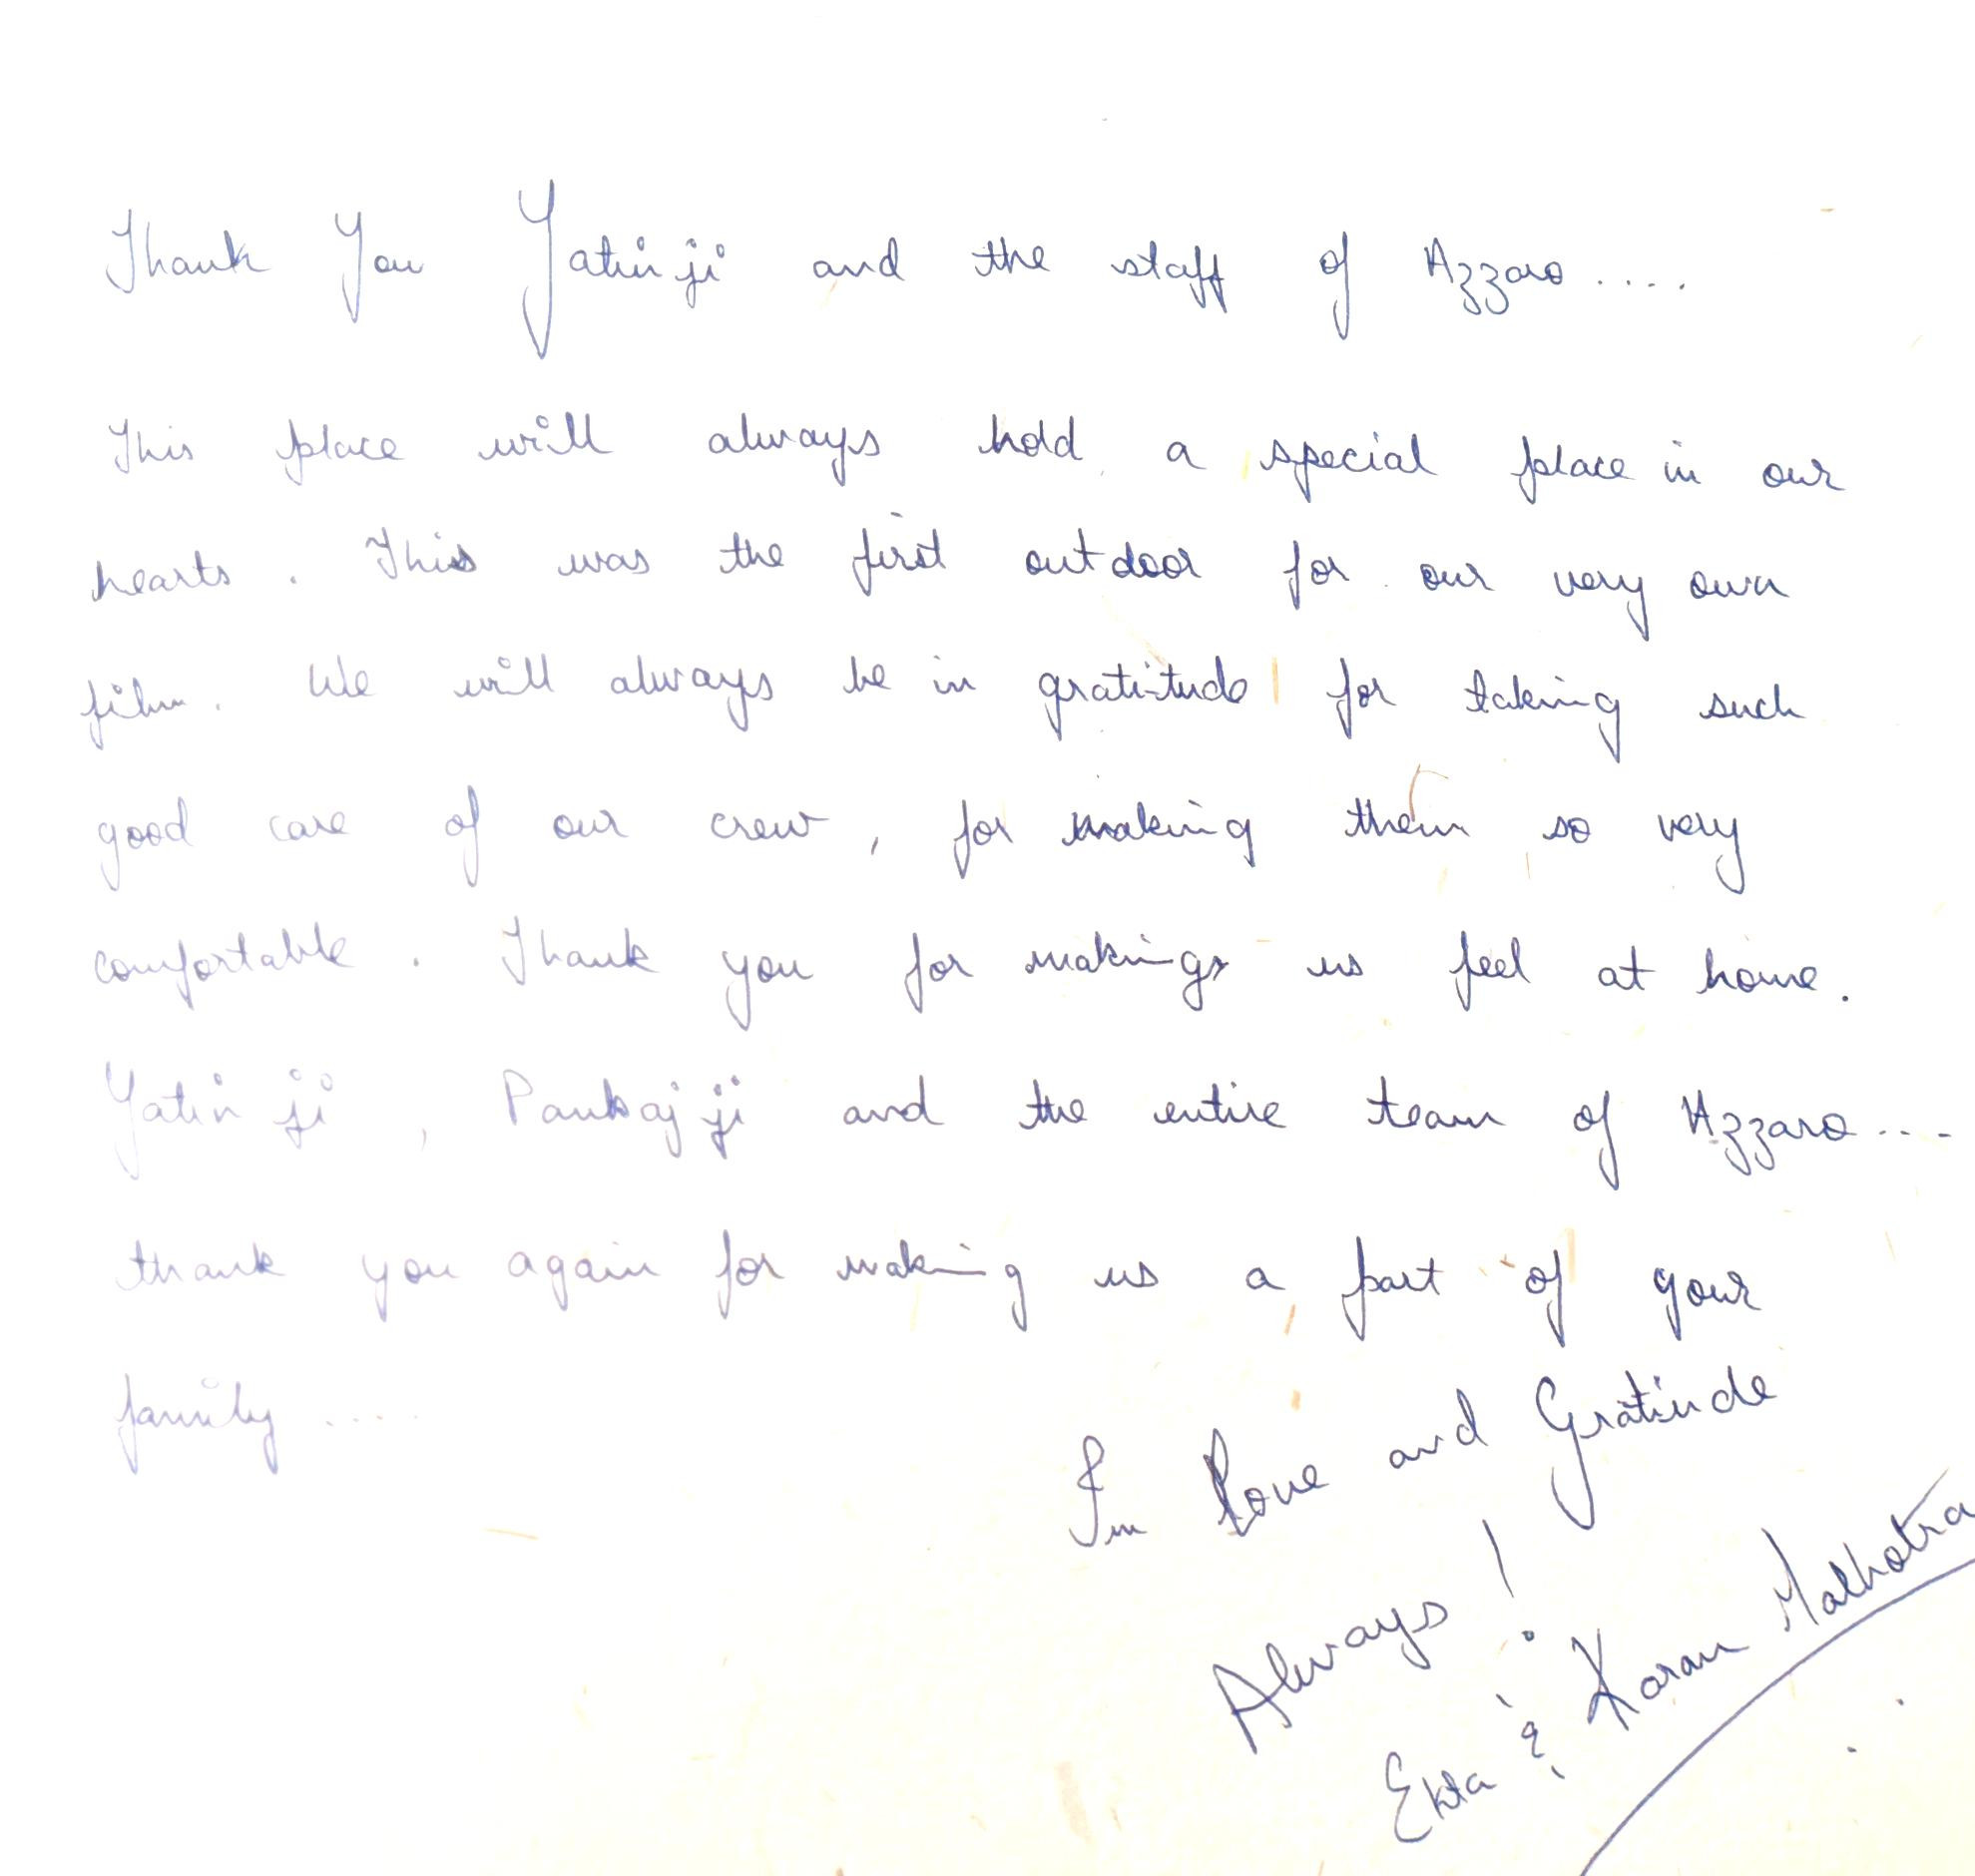 Thank You Yatin ji and the staff of Azzaro.....
This place will always hold a special place in our
hearts. This was the first outdoor for our very own
film. We will always be in gratitude for taking such
good care of our crew, for making them so very
comfortable. Thank you for making us feel at home.
Yatin ji, Pankaj ji and the entire team of Azzaro....
thank you again for making us a part of your
family ....
In Love and Gratitude
Always!
Ekta & Karan Malhotra